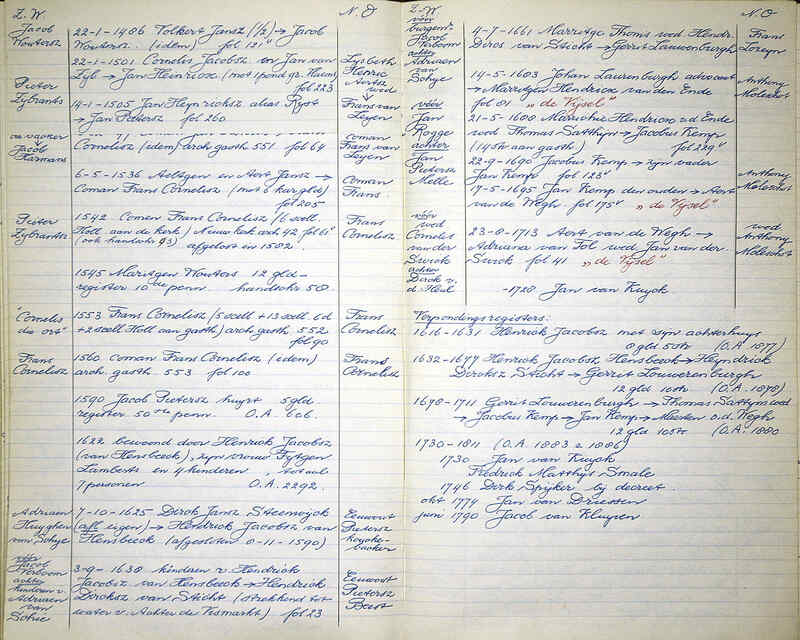 Z. W.
N. O
Jacob
Woutersz
22-1-1486 Volkert Jansz (1/2) → Jacob
Woutersz. (idem) fol 121v
22-1-1501 Cornelis Jacobsz en Jan van
Zyl → Jan Heinricxz. (met 1 pond gr. )
fol 223
Lysbeth
Henric
Aerts
wed
Pieter
Zybrants
14-1-1505 Jan Heynricksz alias Ryst
→ Jan Pietersz fol 260
Frans van
Leyen
Jacob
Harmans
Cornelisz (idem) arch gasth 551 fol 64
coman
Frans van
Leyen
6-5-1536 Aeltgen en Aert Jansz →
Coman Frans Cornelisz (met 6 kar. gld)
fol 205
Coman
Frans.
Pieter
Zybrantsz
1542 Comen Frans Cornelisz (6 scell.
Holl aan de kerk) Nieuw Kerk arch 42 fol 61v
(ook handschr 93) afgelost in 1502.
Frans
Cornelisz
1545 Maritgen Wouters 12 gld -
register 10de penn. handschr 50.
"Cornelis
die ort"
1553 Frans Cornelisz (5 scell + 13 scell 6d
+ 2 scell Holl aan gasth) arch gasth 552
fol 90
Frans
Cornelisz
Frans
Cornelisz
1560 coman Frans Cornelisz (idem)
arch. gasth 553 fol 100
Frans
Cornelisz
1590 Jacob Pietersz huyrt 5 gld
register 50ste penn. O.A. 606.
1622 bewoond door Henrick Jacobsz
(van Hensbeeck), zyn vrouw Fytgen
Lamberts en 4 kinderen, totaal
7 personen O.A. 2292.
Adriaen
Huyghen
van Sohye
7-10-1625 Dirck Jansz Steenwijck
(afl. eigen) → Hendrick Jacobsz van
Hensbeeck (afgesloten 8-11-1590)
Eeuwout
Pietersz
koycke-
backer
vóór
Jacob
Verboom
achter
kinderen v.
Adriaen
van
Sohye
3-9-1638 kinderen v. Hendrick
Jacobsz van Hensbeeck → Hendrick
Dircksz van Sticht (strekkend tot
water v. Achter de Vismarkt) fol 23
Eeuwout
Pietersz
Beest
Z. W
N. O
vóór
burgem.
Jacob
Verboom
achter
Adriaen
van
Sohye
4-7-1661 Marritge Thomis wed Hendr.
Dircs van Sticht → Gerrit Lauwenburgh
Frans
Loreyn
14-5-1683 Johan Laurenburgh advocaet
→ Marritgen Hendricx van den Ende
fol 81 „de Vijsel"
Anthony
Moleschot
vóór
Jan
Rogge
achter
Jan
Pietersz
Melle
21-5-1688 Marrichie Hendricx v.d Ende
wed Thomas Satthyn → Jacobus Kemp
(145th aan gasth) fol 229v
22-9-1690 Jacobus Kemp → zyn vader
Jan Kemp fol 123v
7-5-1695 Jan Kemp den ouden → Aert
van de Wegh. fol 175v „de Vijsel"
Anthony
Moleschot
vóór
wed
Cornelis
van der
Swick
achter
Dirck v.
d. Heul
23-8-1713 Aert van de Wegh →
Adriana van Tol wed Jan van der
Swick fol 41 „de Vijsel"
wed
Anthony
Moleschot
-1728 Jan van Kuyck
Verpondingsregisters:
1616-1631 Henrick Jacobsz met zyn achterhuys
8 gld 5 oth (O.A. 1877)
1632-1677 Henrick Jacobsz. Hensbeeck → Heyndrick
Dircksz Sticht → Gerrit Louwerenburgh
12 gld 10 st (O.A. 1878)
1678-1711 Gerrit Louwerenburgh → Thomas Sattyns wed
→ Jacobus Kemp → Jan Kemp → Meesten v.d. Wegh
12 gld 10 st (O.A. 1880
1730-1811 (O.A. 1883 a 1886)
1730 Jan van Kuyck
Fredrick Matthys Smale
1746 Dirk Spyker by decreet
okt 1774 Jan van Driesten
juni 1790 Jacob van Kluysen